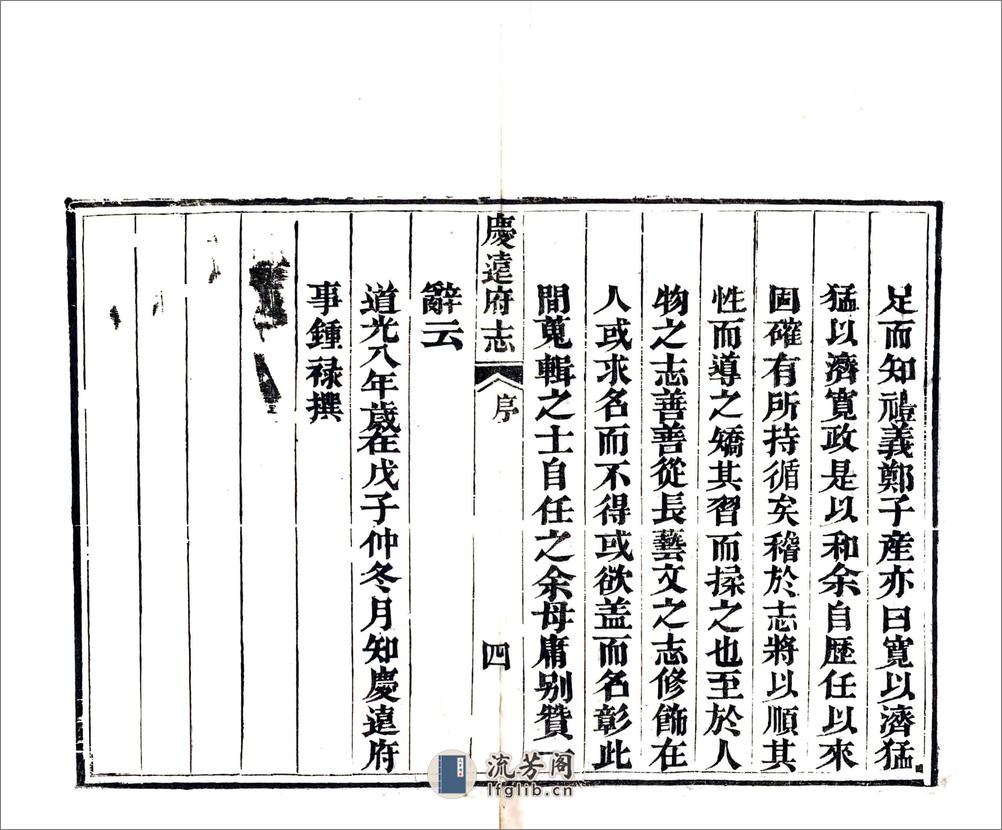 足而知禮義鄭子產亦曰寬以濟猛
猛以濟寬政是以和余自歷任以來
固確有所持循矣稽於志將以順其
性而導之矯其習而操之也至於人
物之志善善從長藝文之志修飾在
人或求名而不得或欲盖而名彰此
間蒐輯之士自任之余毋庸别贊一
慶遠府志
序
四
辭云
道光八年歲在戊子仲冬月知慶遠府
事鍾禄撰
流芳阁
lfglib.cn